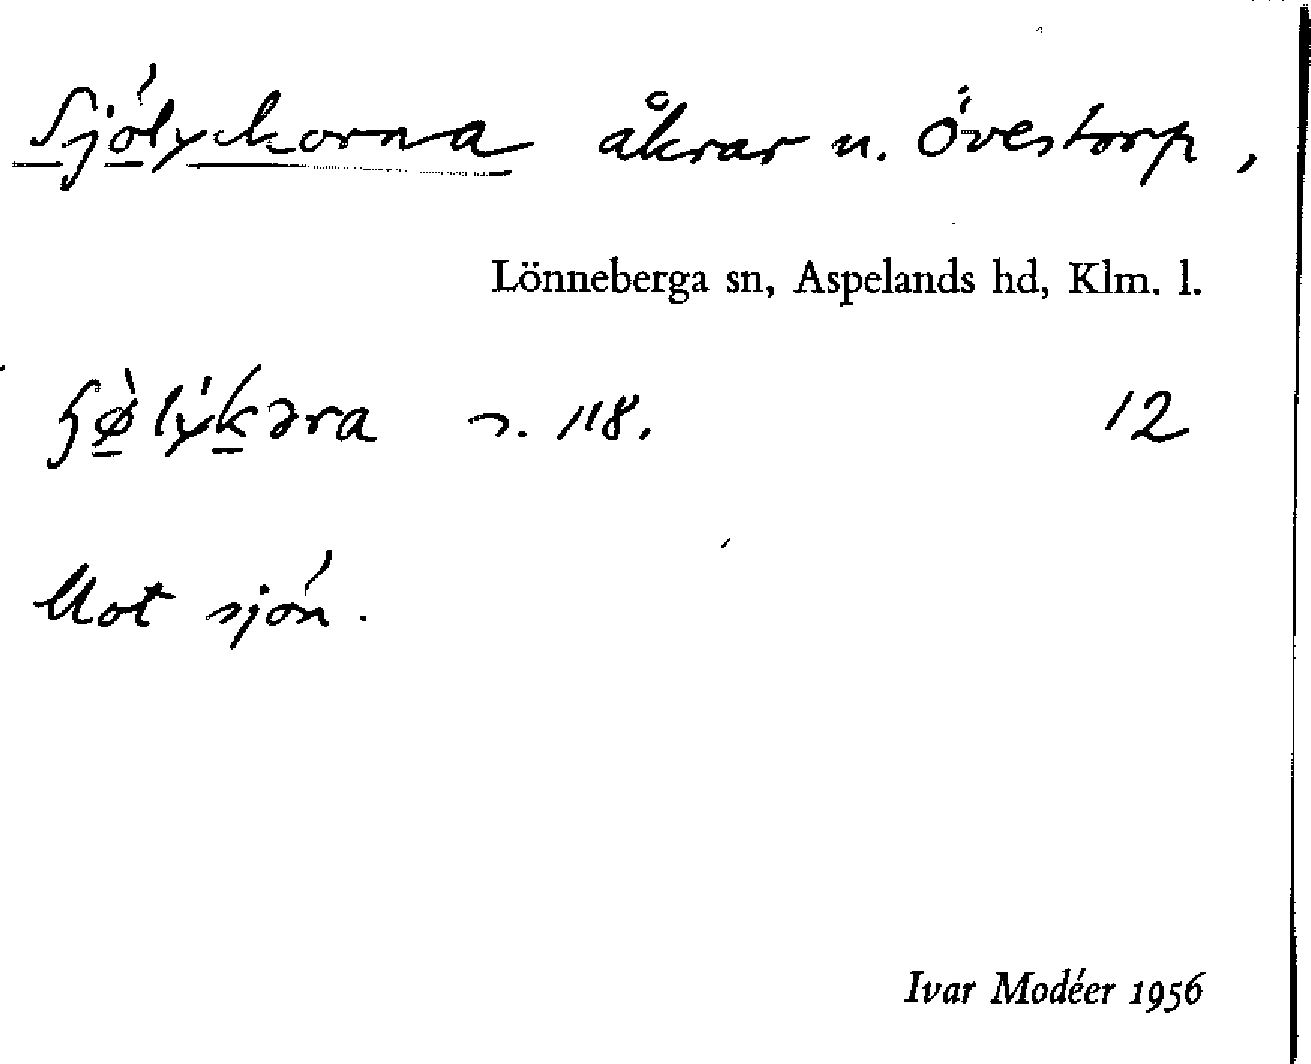 Sjölyckorna åkrar n. Övestorp,
Lönneberga sn, Aspelands hd, Klm. l.
ɧø̀lýkəra s. 118. 12
Mot sjön.
Ivar Modéer 1956